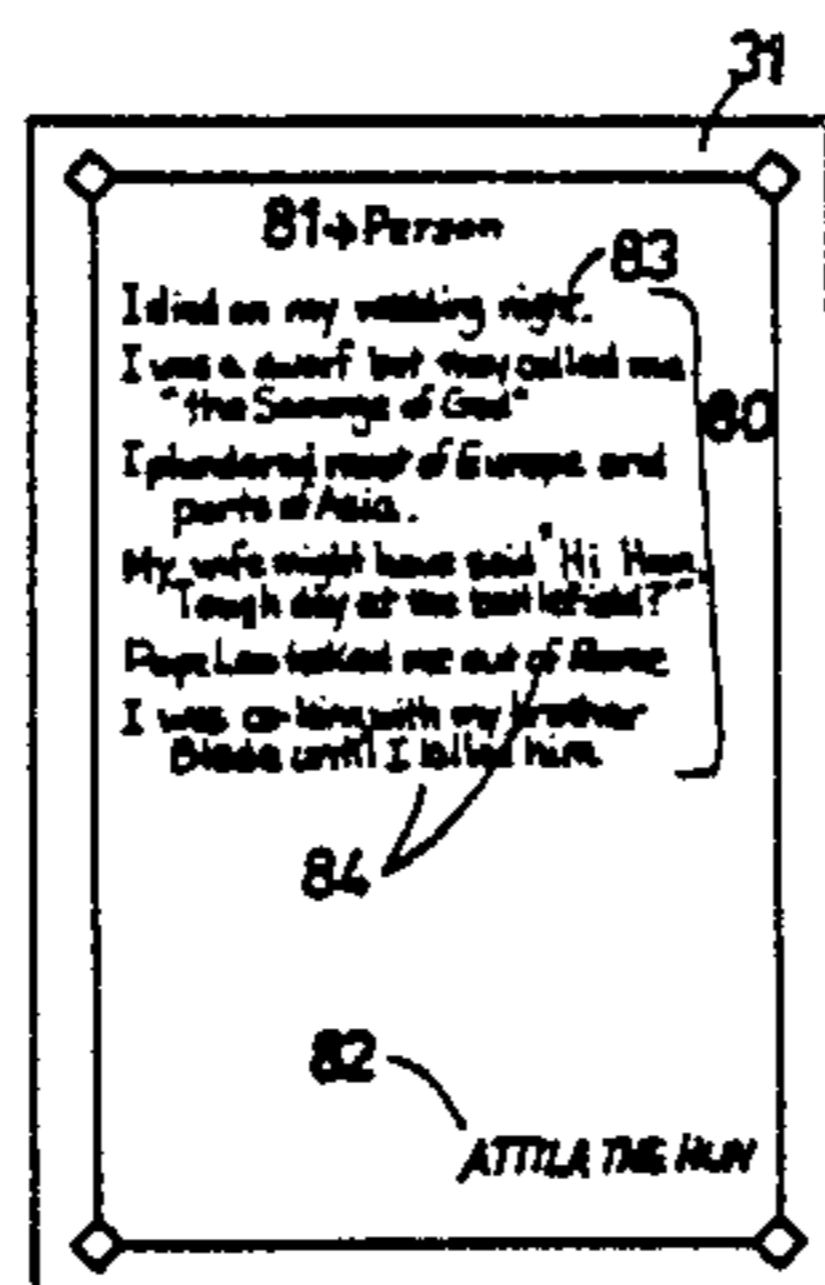 31
81→Person
83
I died on my wedding night.
I was a dwarf but they called me
"the Scourge of God"
80
I plundered most of Europe and
parts of Asia.
My wife might have said "Hi Hun,
Tough day at the battlefield?"
Pope Leo talked me out of Rome
I was co-king with my brother
Bleda until I killed him.
84
82
ATTILA THE HUN